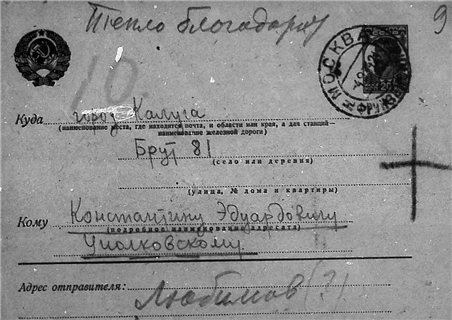 Тепло благодарят
9
10.
МОСКВА
Куда город Калуга
(наименование места, где находится почта, и области или края, а для станций —
наименование железной дороги)
Брут 81
(село или деревня)
(улица, № дома и квартиры)
Кому Константину Эдуардовичу
(подробное наименование адресата)
Циолковскому.
Адрес отправителя: Любимов (?)